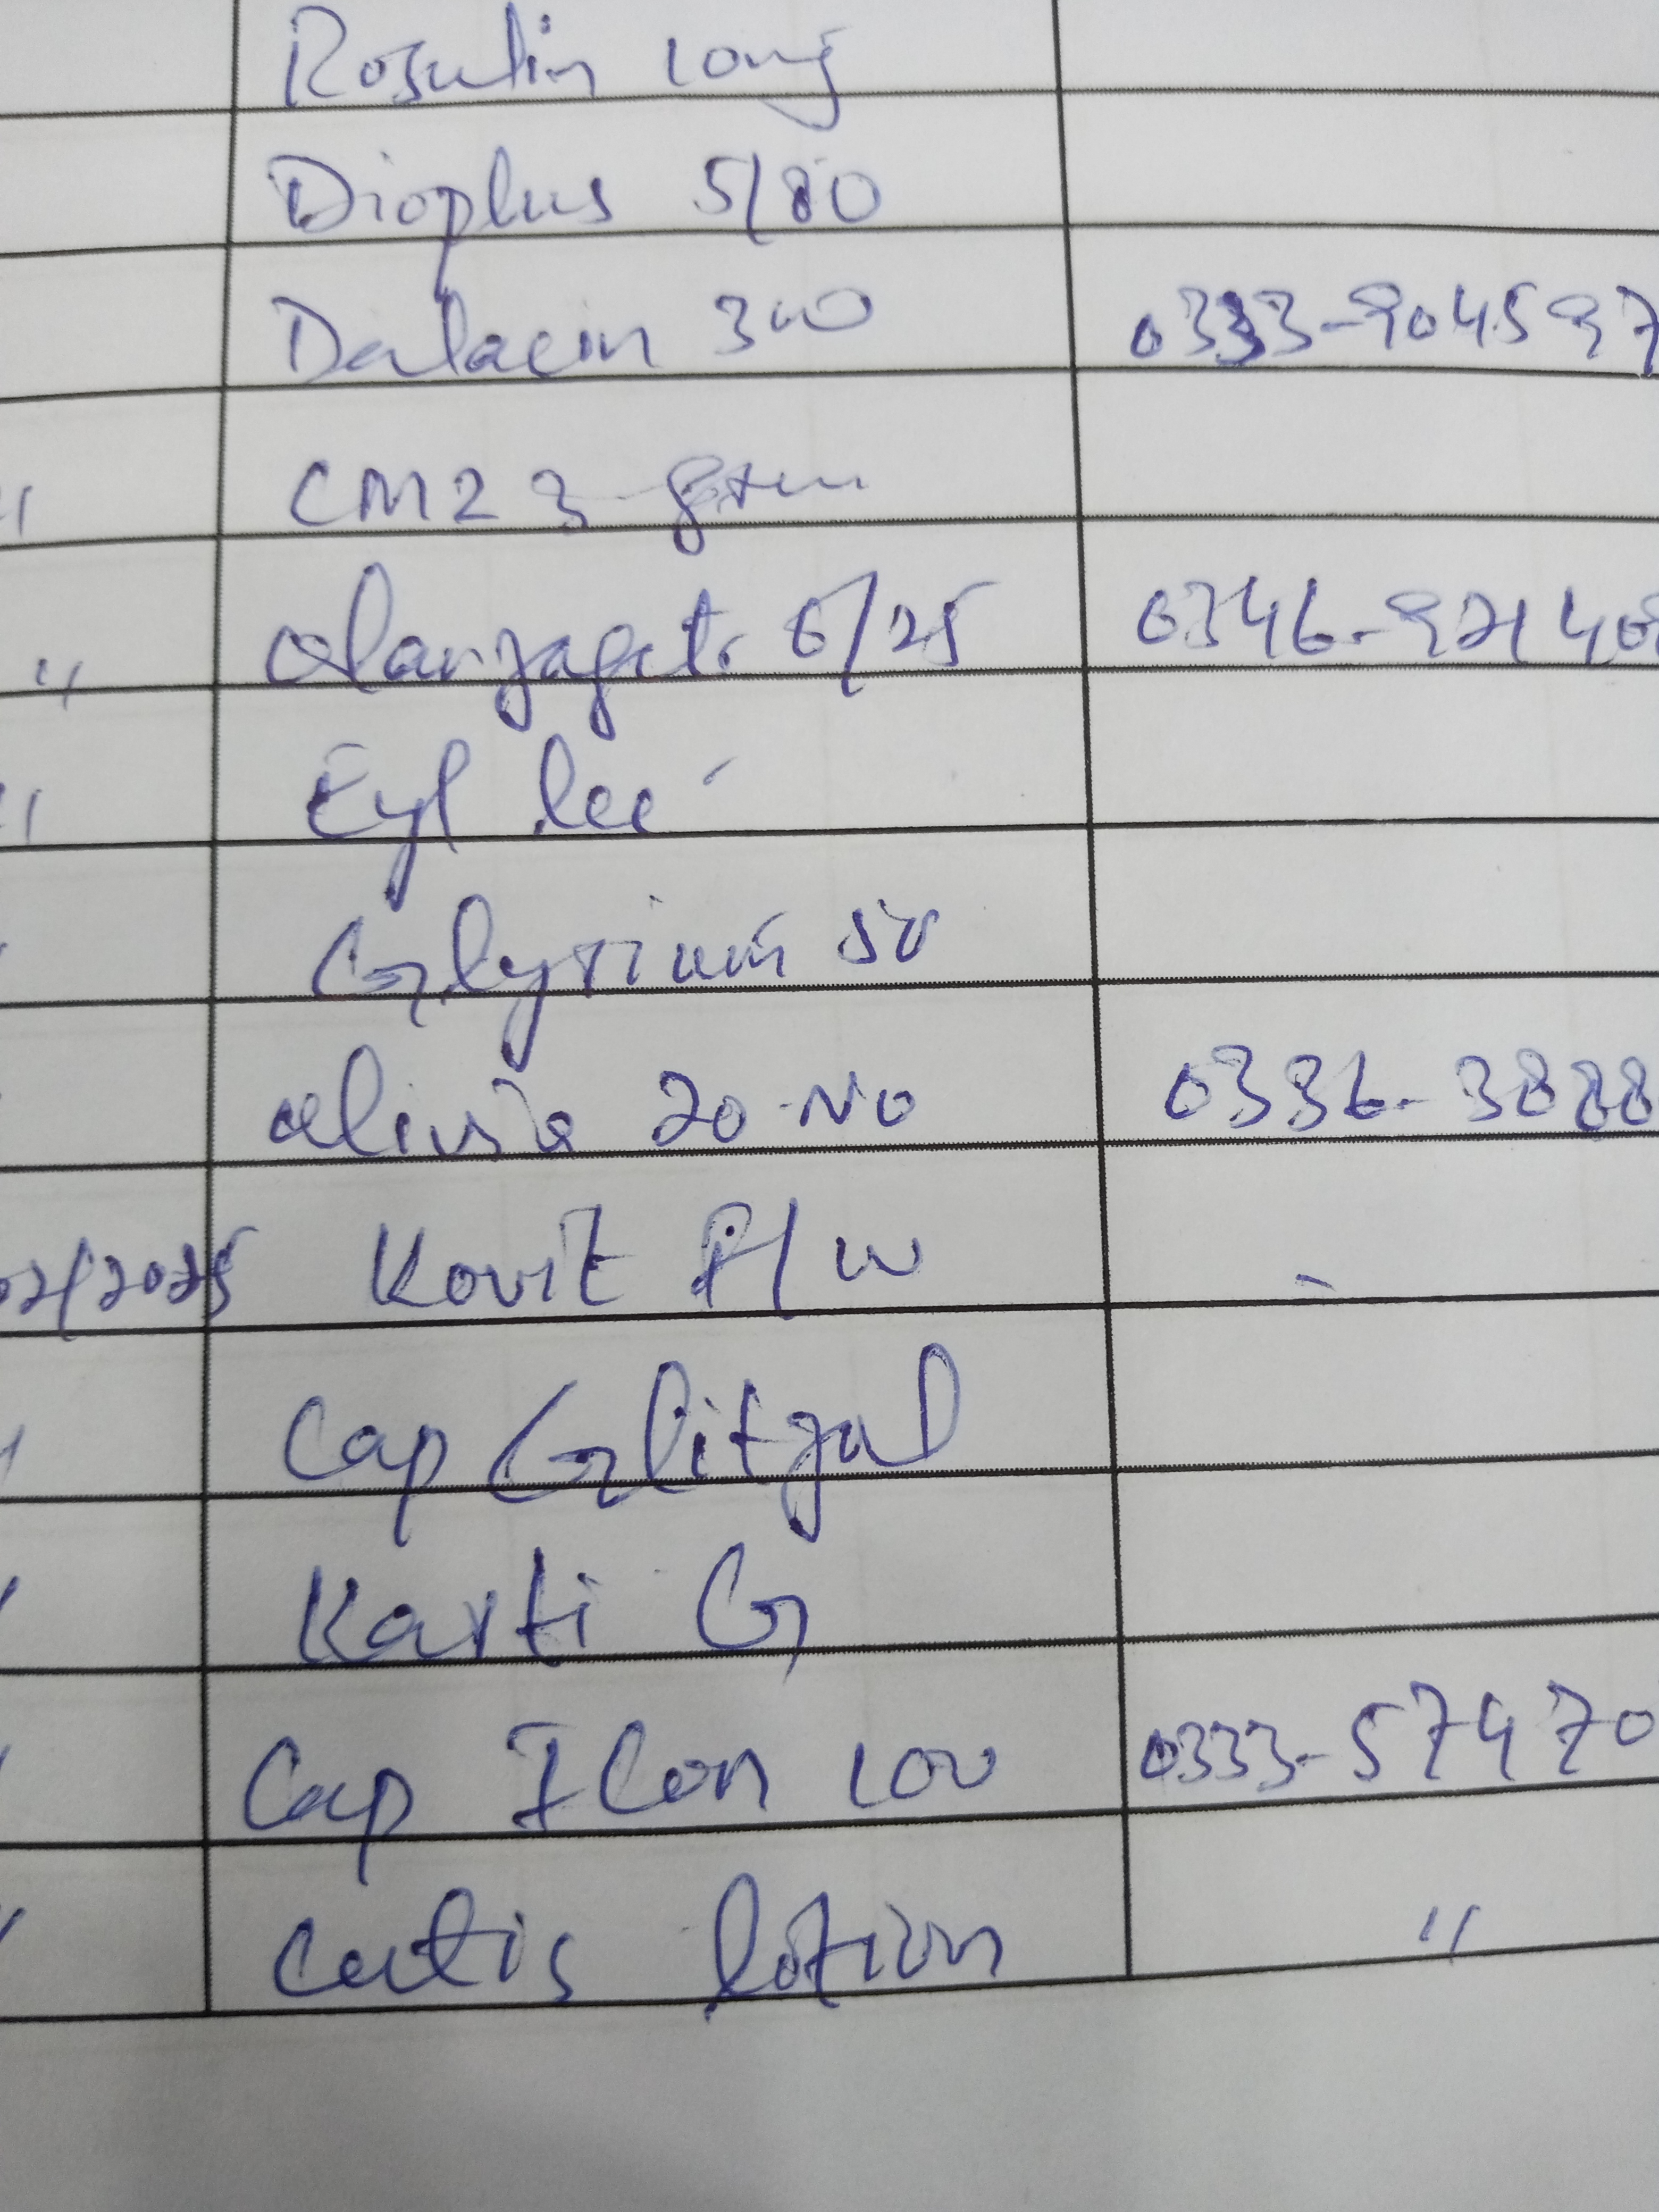 Rosulin 10mg
Dioplus 5/80
Dalacin 300 0333-904597
" CM2 3 gram
" olanzapet. 6/25 0346-92140
" Eyl lee
Glyrium 50
alivia 20 No 0336-3888
02/2025 Kovit F/W -
" Cap Glitzal
" Karti G
" Cap Icon 100 0333-57470
" Cutis lotion "